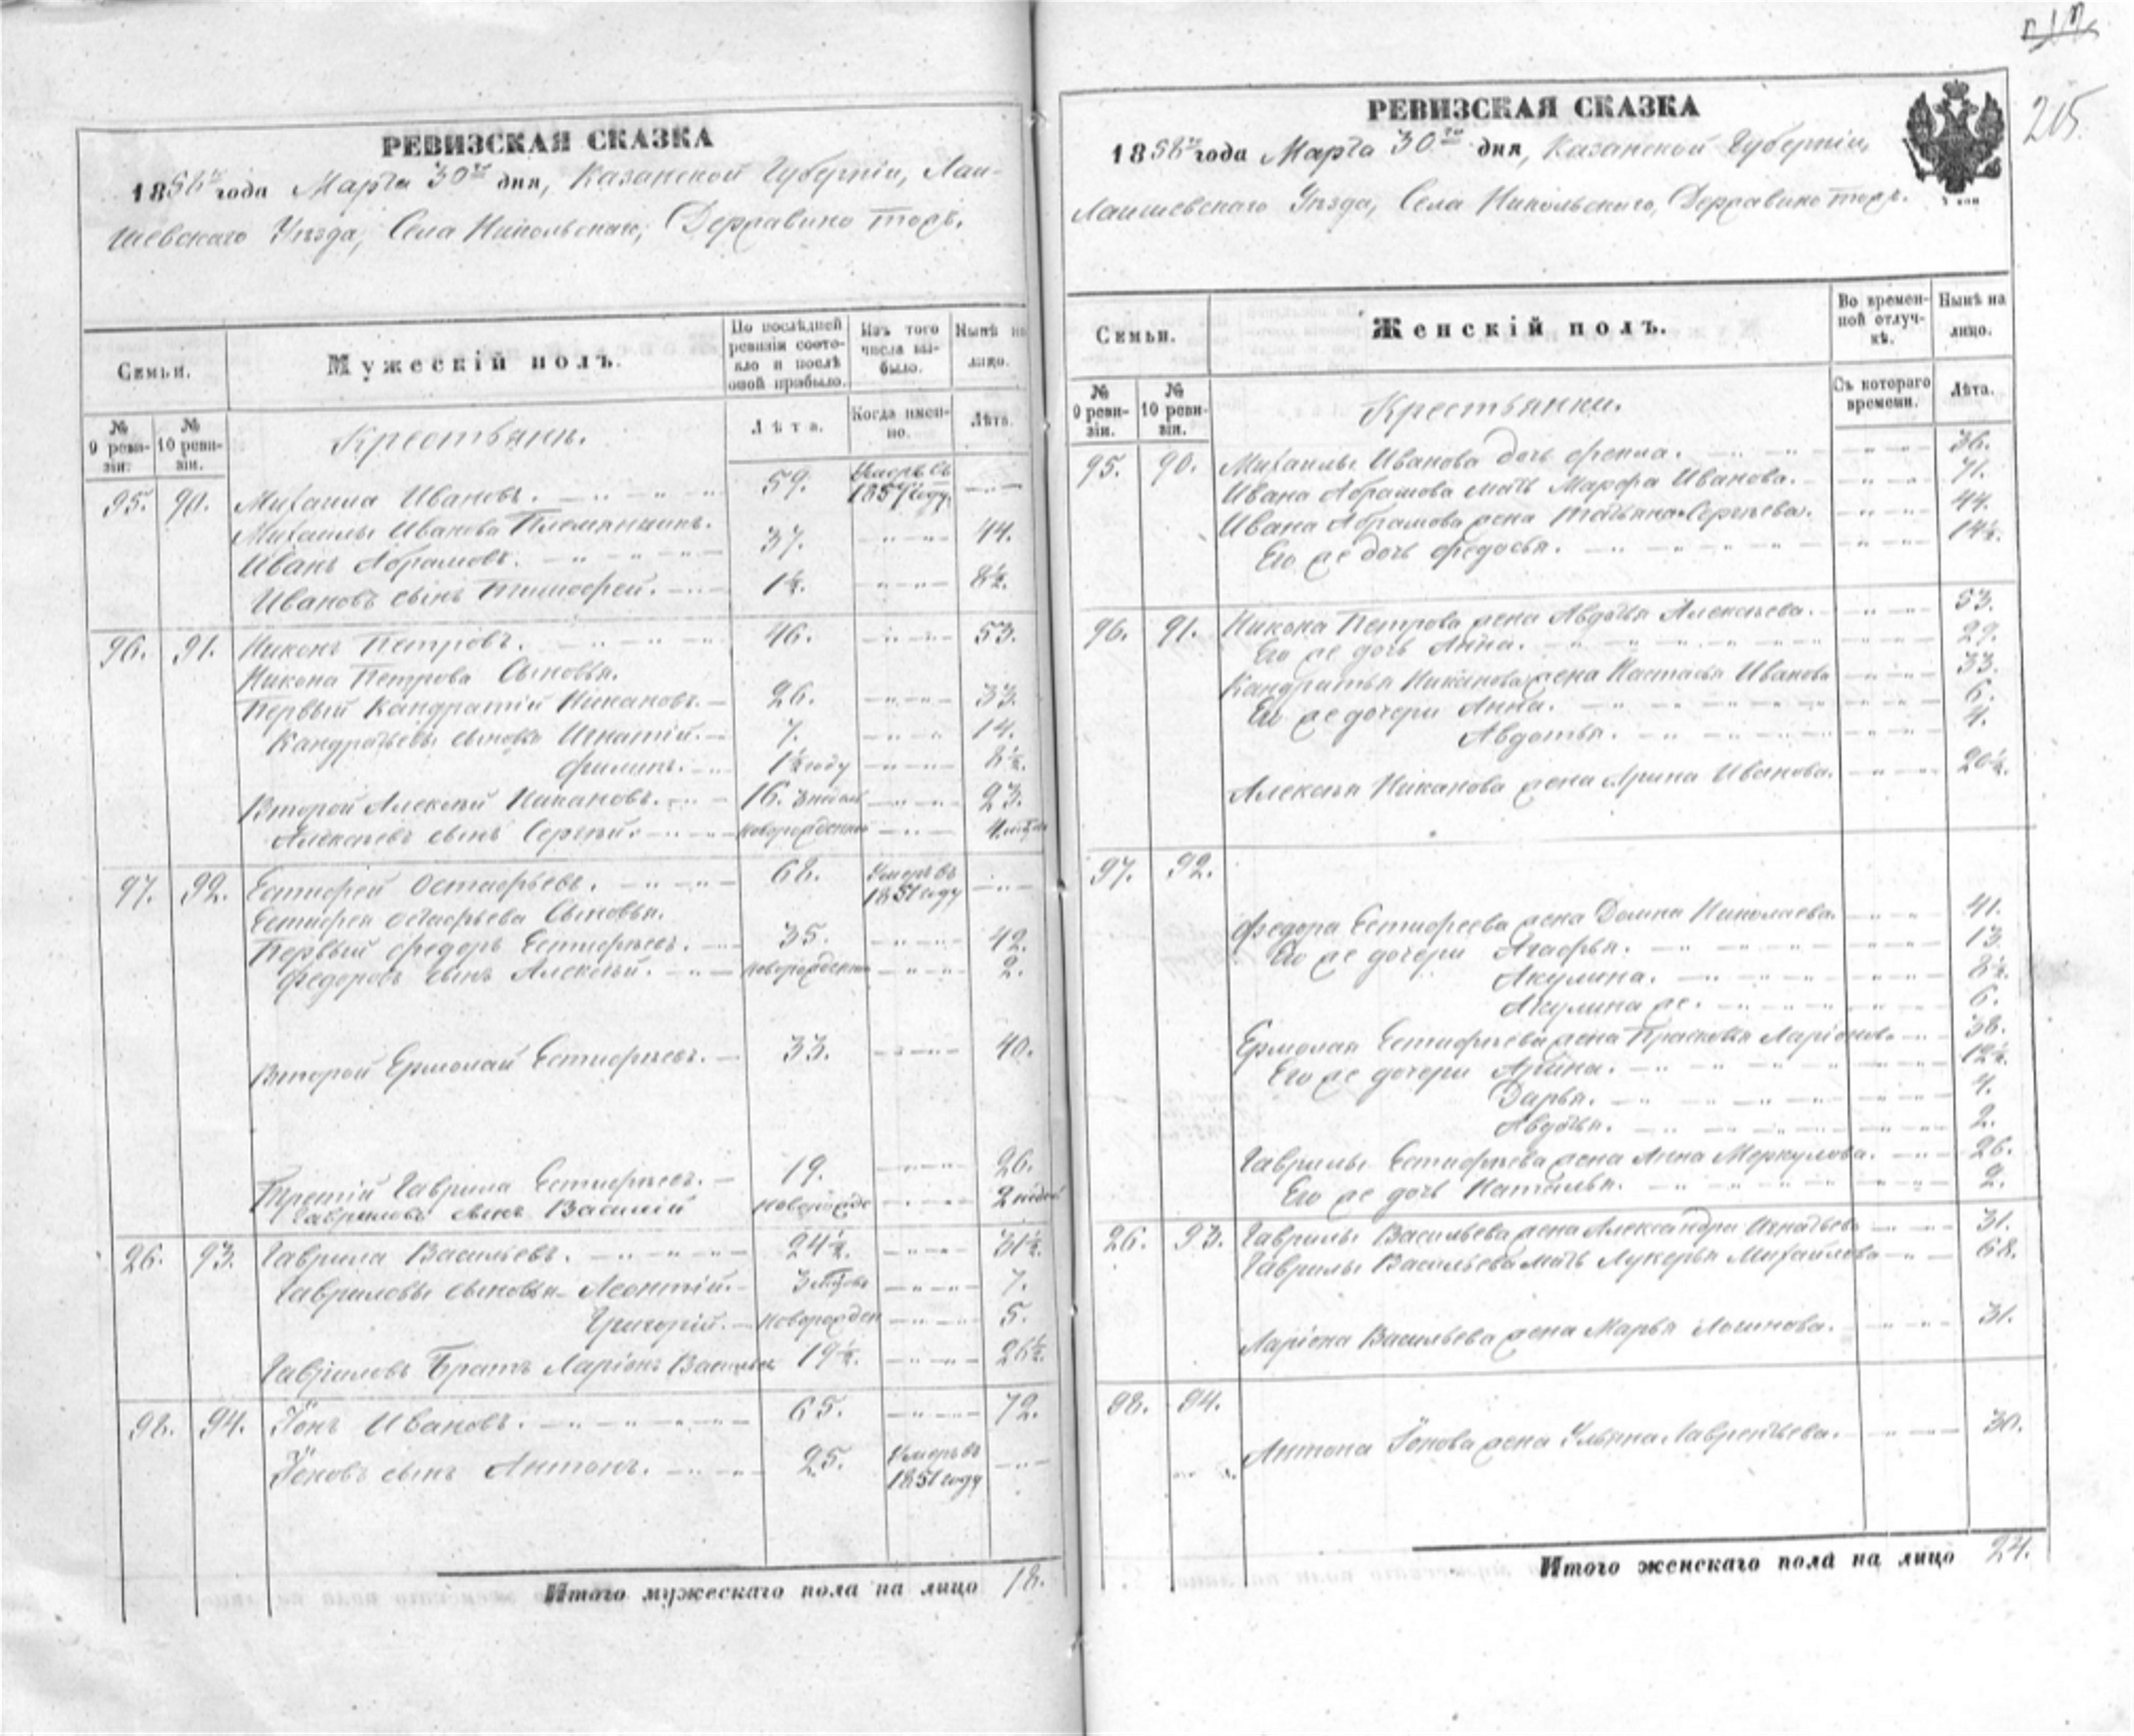 РЕВИЗСКАЯ СКАЗКА
1858го года Марта 30го дня, Казанской Губерніи, Лаи-
шевскаго Уѣзда, Села Никольскаго, Державино тожъ.
Семьи.
Мужескій полъ.
По послѣдней ревизіи состояло и послѣ оной прибыло.
Изъ того числа выбыло.
Нынѣ на лицо.
№ 9 ревизіи.
№ 10 ревизіи.
Крестьяне.
Лѣта.
Когда именно.
Лѣта.
95. 90. Михаила Ивановъ. 59. Умеръ въ 1857 году.
Михаилы Иванова Племянникъ.
Иванъ Абрамовъ. 37. 44.
Ивановъ сынъ Тимофей. 1½. 8½.
96. 91. Никонъ Петровъ. 46. 53.
Никона Петрова Сыновья.
Первый Кандратій Никановъ. 26. 33.
Кандратьевы сыновья Игнатій. 7. 14.
Филипъ. 1½ году 8½.
Второй Алексѣй Никановъ. 16. 23.
Алексѣевъ сынъ Сергѣй. новорожденный 4
97. 92. Естифей Остафьевъ. 68. Умеръ въ 1851 году
Естифея Остафьева Сыновья.
Первый Федоръ Естифѣевъ. 35. 42.
Федоровъ сынъ Алексѣй. новорожденный 2.
Второй Ермолай Естифѣевъ. 33. 40.
Третій Гаврила Естифѣевъ. 19. 26.
Гавриловъ сынъ Василій новорожде 2 недѣл
26. 93. Гаврила Васильевъ. 24½. 31½.
Гавриловы сыновья Леонтій. 7.
Григорій. новорожден 5.
Гавриловъ Братъ Ларіонъ Васильевъ 19½. 26½.
98. 94. Іонъ Ивановъ. 65. 72.
Іоновъ сынъ Антонъ. 25. Умеръ въ 1851 году
Итого мужескаго пола на лицо 18.
215.
РЕВИЗСКАЯ СКАЗКА
1858го года Марта 30го дня, Казанской Губерніи,
Лаишевскаго Уѣзда, Села Никольскаго, Державино тожъ.
Семьи.
Женскій полъ.
Во временной отлучкѣ.
Нынѣ на лицо.
№ 9 ревизіи.
№ 10 ревизіи.
Крестьянки.
Съ котораго времени.
Лѣта.
95. 90. Михаилы Иванова дочь Фекла. 36.
Ивана Абрамова мать Марфа Иванова. 71.
Ивана Абрамова жена Татьяна Сергѣева. 44.
Его же дочь Федосья. 14½.
96. 91. Никона Петрова жена Авдотья Алексѣева. 53.
Его же дочь Анна. 29.
Кандратья Никанова жена Настасья Иванова 33.
Его же дочери Анна. 6.
Авдотья. 4.
Алексѣя Никанова жена Арина Иванова. 20½.
97. 92.
Федора Естифеева жена Домна Николаева. 41.
Его же дочери Агафья. 13.
Акулина. 8½.
Акулина же. 6.
Ермолая Естифѣева жена Прасковья Ларіонов. 38.
Его же дочери Арина. 12½.
Дарья. 4.
Авдотья. 2.
Гаврилы Естифѣева жена Анна Меркулова. 26.
Его же дочь Наталья. 2.
26. 93. Гаврилы Васильева жена Александра Игнатьева 31.
Гаврилы Васильева мать Лукерья Михайлова 68.
Ларіона Васильева жена Марья Логинова. 31.
98. 94.
Антона Іонова жена Ульяна Лаврентьева. 30.
Итого женскаго пола на лицо 24.